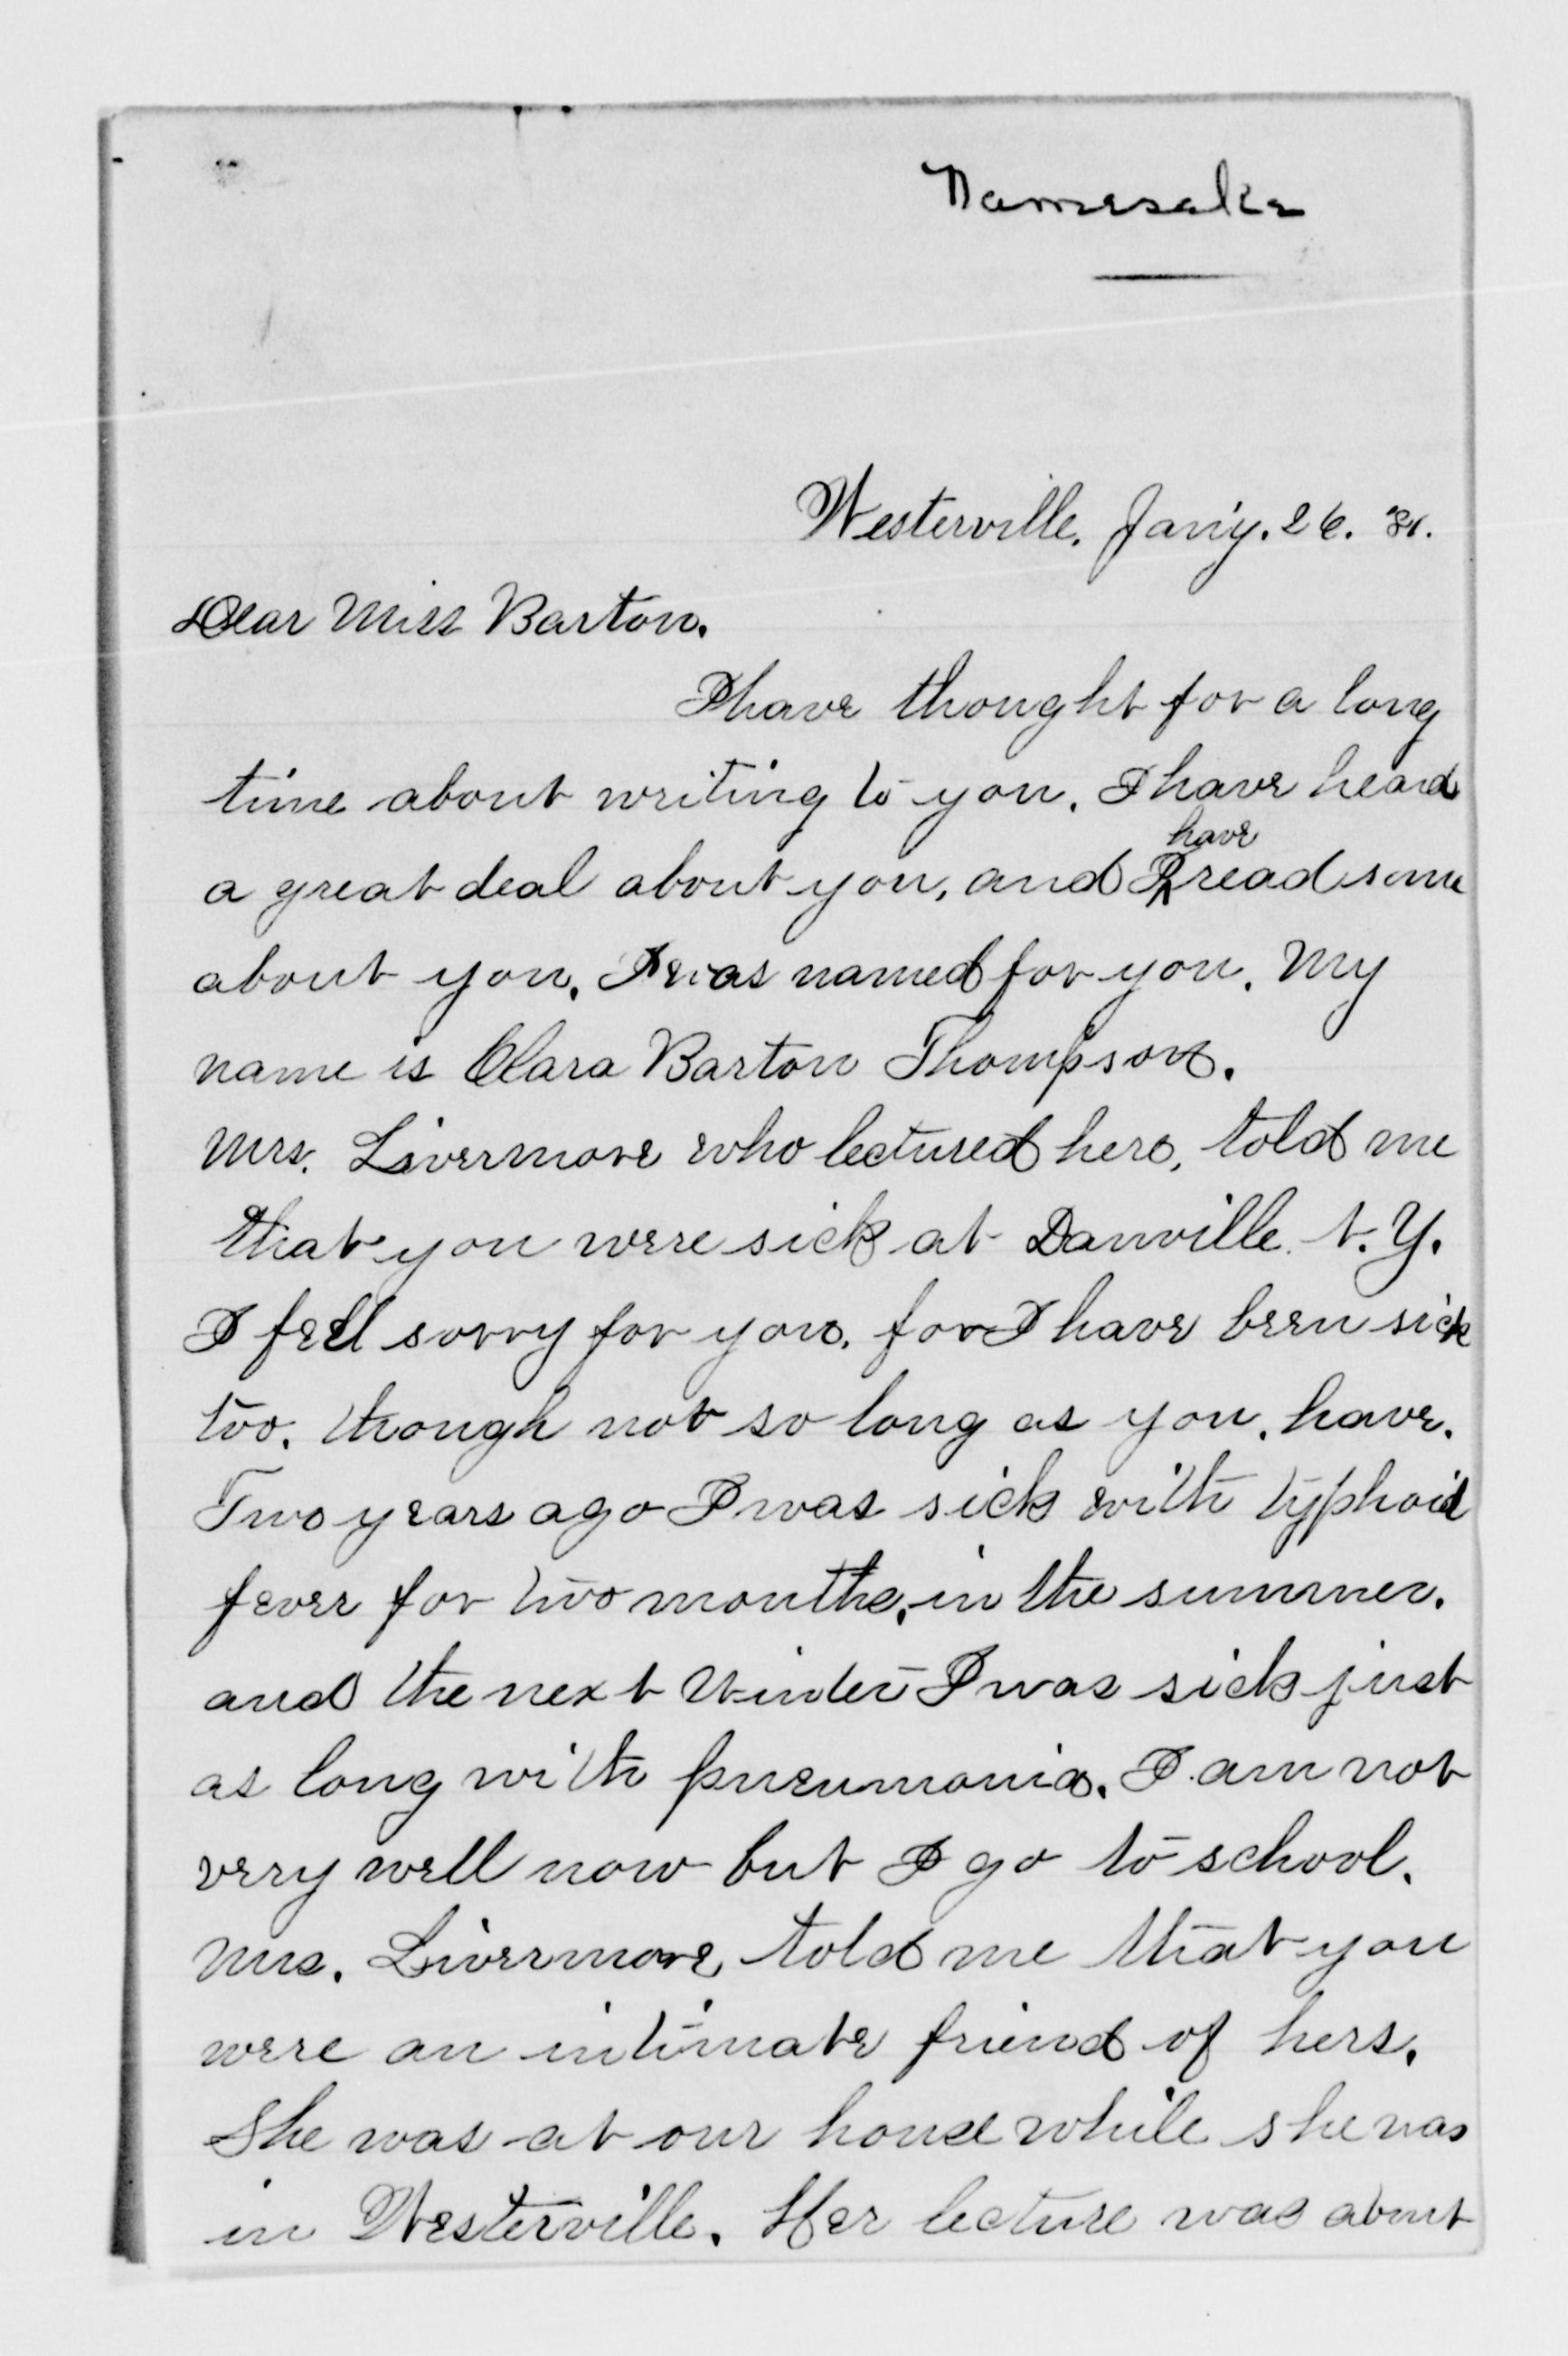 Namesake
Westerville. Jan'y. 26. '81.
Dear Miss Barton.
I have thought for a long
time about writing to you. I have heard
have
a great deal about you, and I read some
about you. I was named for you. My
name is Clara Barton Thompson.
Mrs. Livermore who lectured here, told me
that you were sick at Danville. N.Y.
I feel sorry for you. for I have been sick
too. though not so long as you. have.
Two years ago I was sick with typhoid
fever for two months. in the summer.
and the next Winter I was sick just
as long with pneumonia. I am not
very well now but I go to school.
Mrs. Livermore told me that you
were an intimate friend of hers.
She was at our house while she was
in Westerville. Her lecture was about